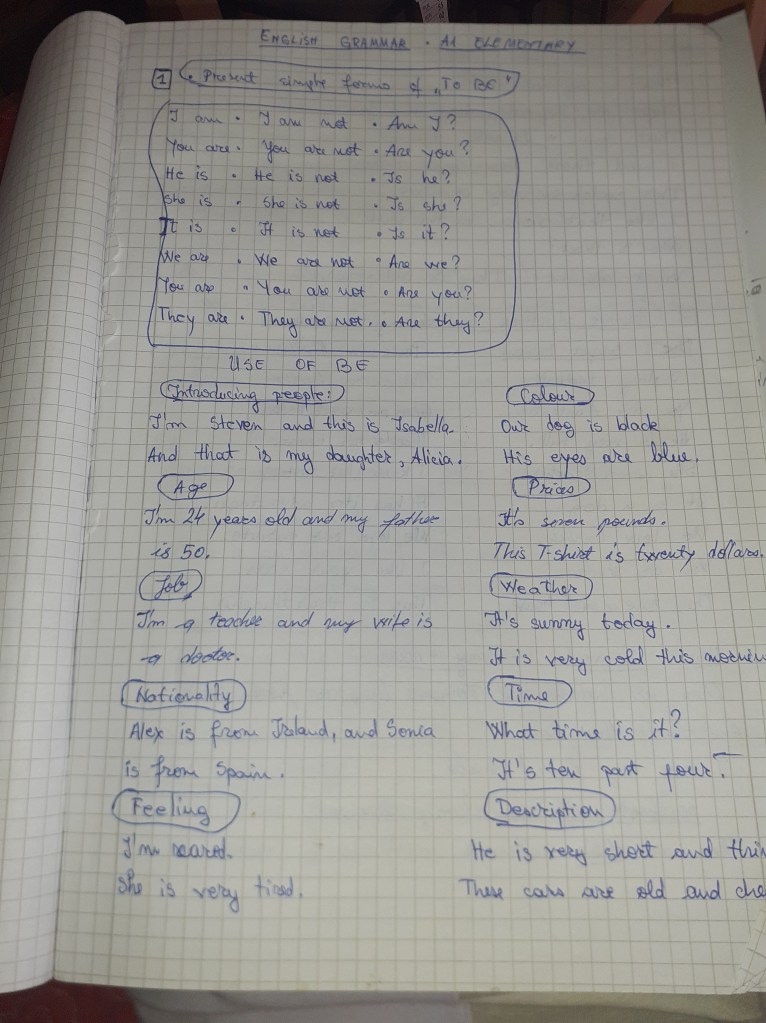 ENGLISH GRAMMAR · A1 ELEMENTARY
1 • Present simple forms of „TO BE"
I am • I am not • Am I?
You are • You are not • Are you?
He is • He is not • Is he?
She is • She is not • Is she?
It is • It is not • Is it?
We are • We are not • Are we?
You are • You are not • Are you?
They are • They are not. • Are they?
USE OF BE
Introducing people:
I'm Steven and this is Isabella.
And that is my daughter, Alicia.
Age
I'm 24 years old and my father
is 50.
Job
I'm a teacher and my wife is
a doctor.
Nationality
Alex is from Ireland, and Sonia
is from Spain.
Feeling
I'm scared.
She is very tired.
Colour
Our dog is black
His eyes are blue.
Prices
It's seven pounds.
This T-shirt is twenty dollars.
Weather
It's sunny today.
It is very cold this
Time
What time is it?
It's ten past four.
Description
He is very short and
These cars are old and